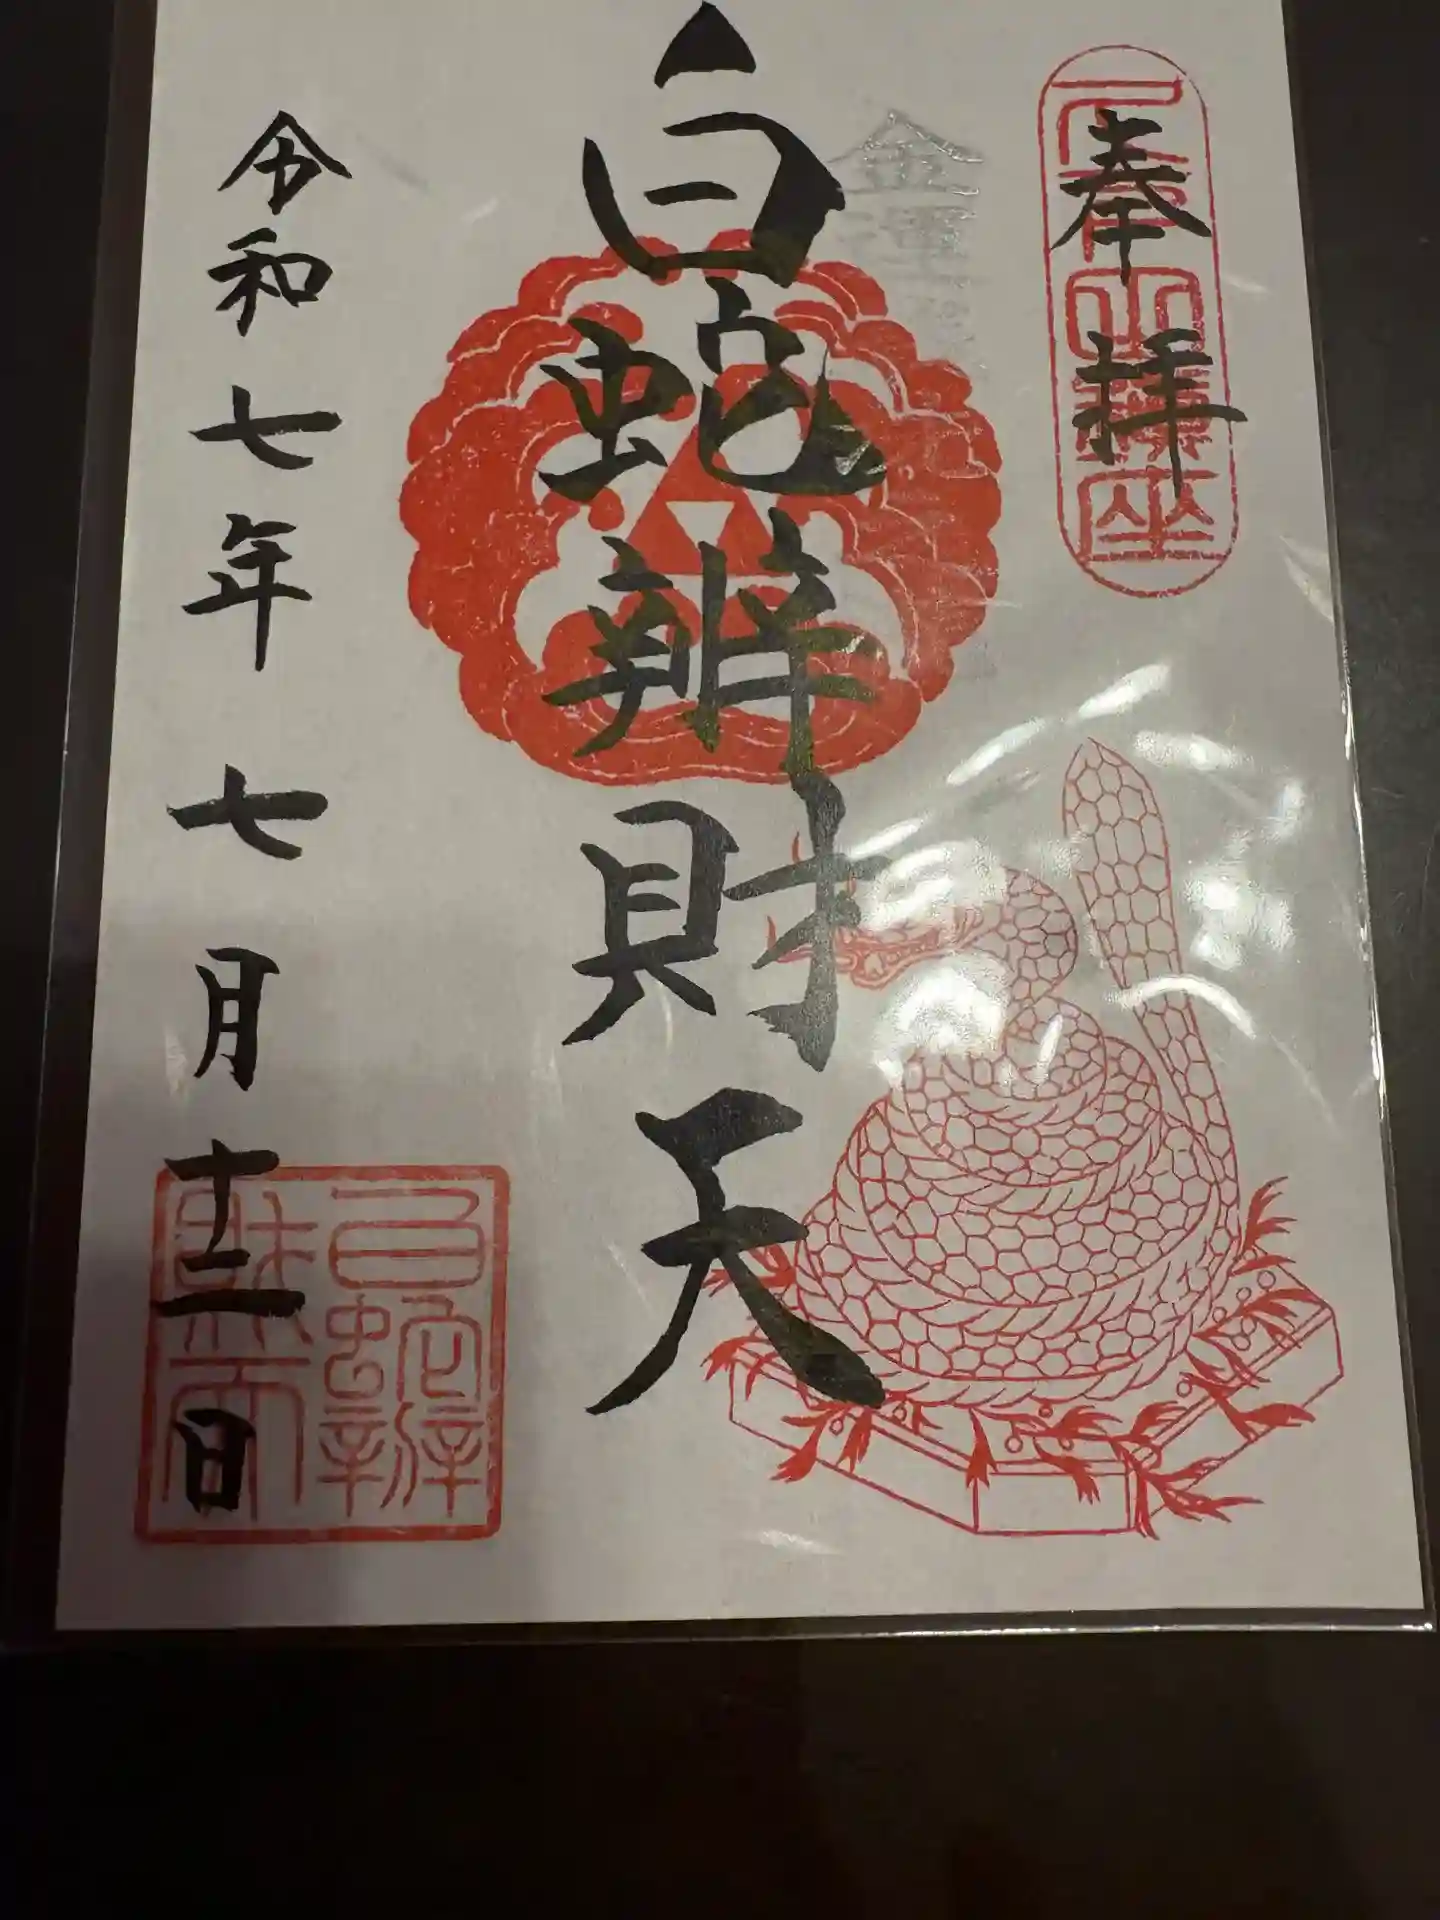 奉拝
金運
白蛇辨財天
令和七年七月十二日
白蛇辨
財天